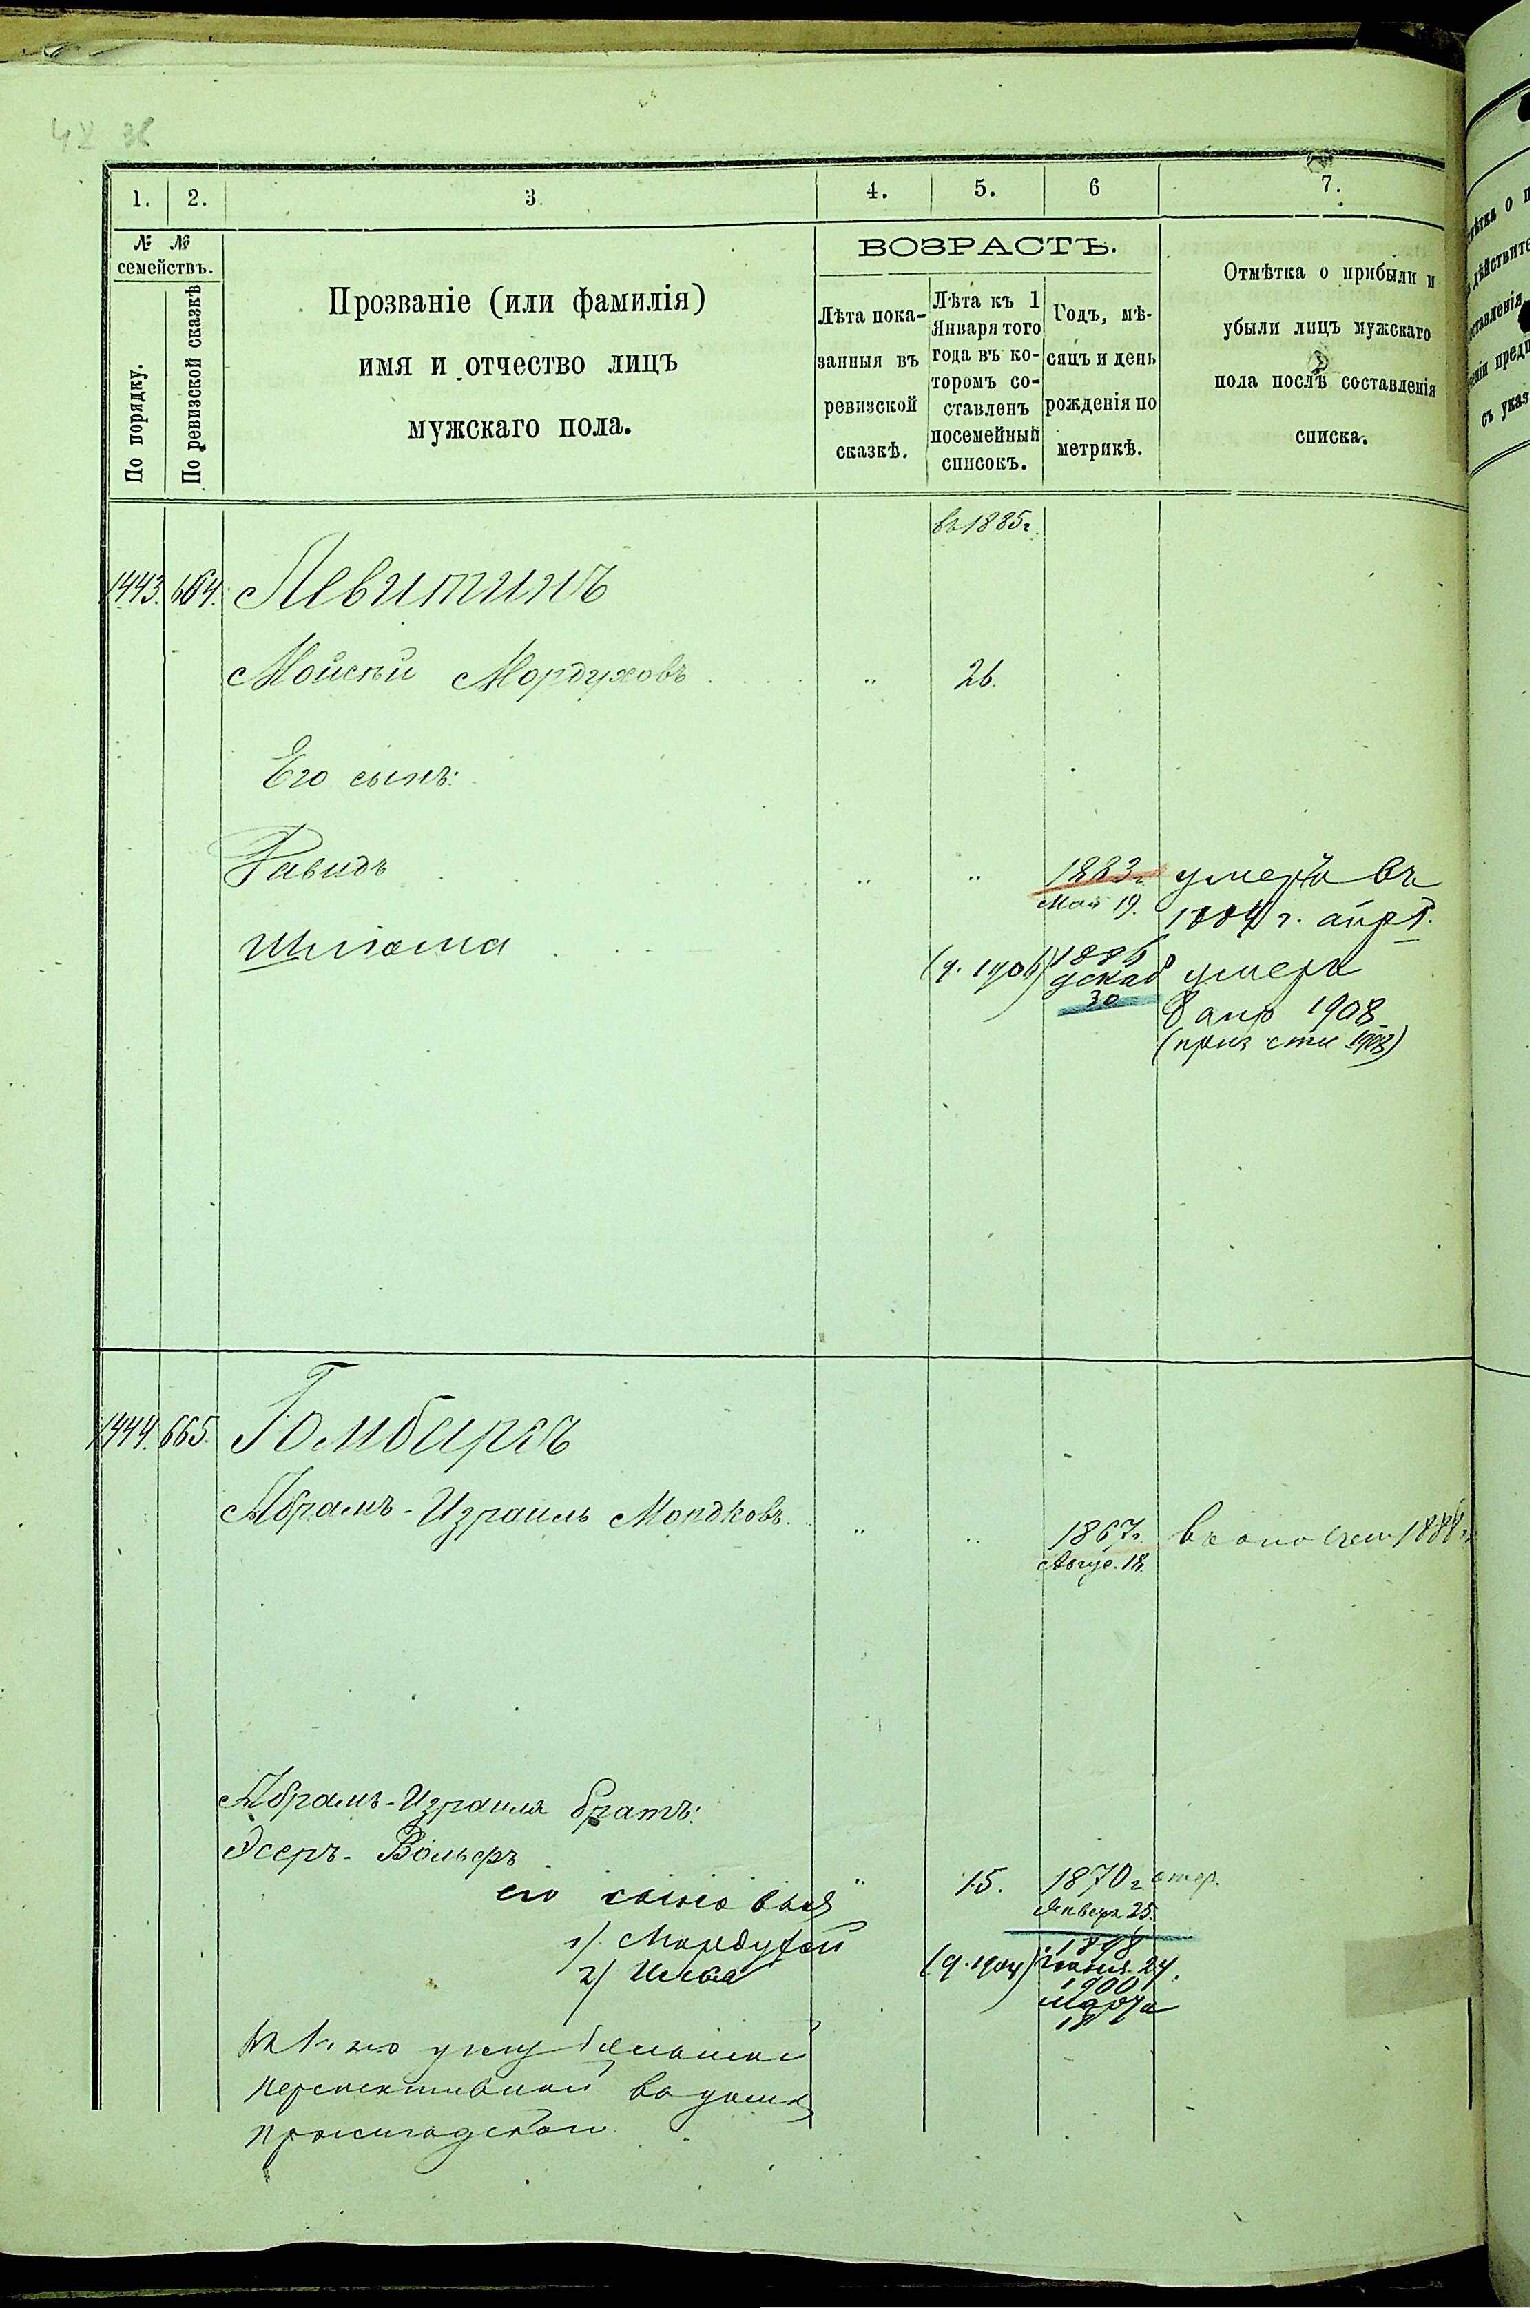 1. 2. 3 4. 5. 6 7.
№ №
семействъ.
По порядку.
По ревизской сказкѣ
Прозваніе (или фамилія)
имя и отчество лицъ
мужскаго пола.
ВОЗРАСТЪ.
Лѣта пока-
занныя въ
ревизской
сказкѣ.
Лѣта къ 1
Января того
года въ ко-
торомъ со-
ставленъ
посемейный
списокъ.
Годъ, мѣ-
сяцъ и день
рожденія по
метрикѣ.
Отмѣтка о прибыли и
убыли лицъ мужскаго
пола послѣ составленія
списка.
въ 1885 г.
1443. 664. Левитинъ
Мойсѣй Мордуховъ 26.
Его сынъ:
Давидъ 1883 г. умеръ въ
Мая 19. 1884 г. апр.
Шлёма (ч. 1906) 1886
декаб умеръ
30 8 апр 1908
1444. 665. Гомбергъ
Абрамъ-Израиль Мордковъ. 1867 г. 1888 г.
Авгус. 18.
Абрамъ-Израиля братъ:
Эсеръ-Вольфъ 15. 1870 г.
Января 25.
его сыновья
1) Мордухай 1898
2) (ч. 1904) 24.
1900
марта
18